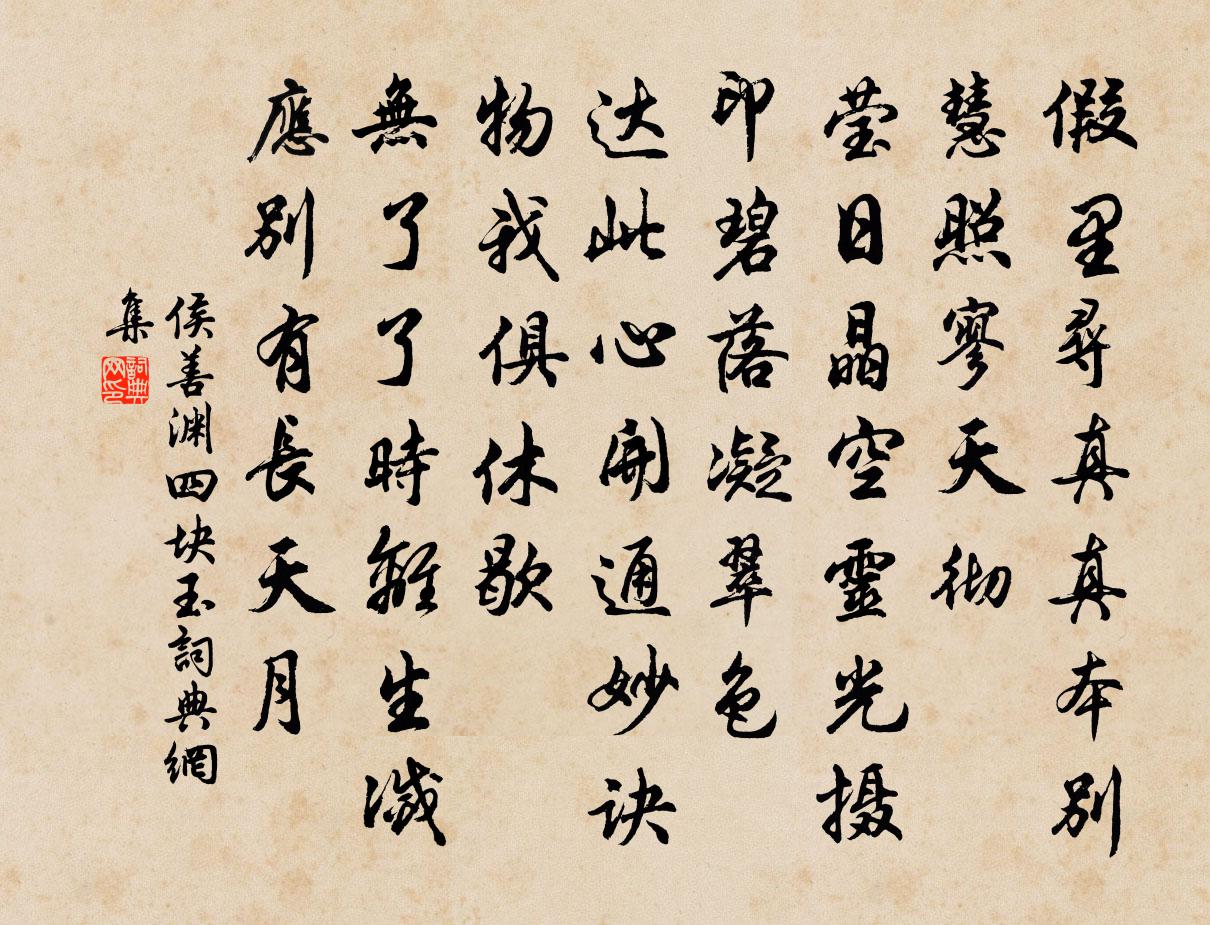 假里尋真真本別
慧照寥天彻
莹日晶空靈光摄
印碧落凝翠色
达此心開通妙诀
物我俱休歇
無了了時離生滅
應別有長天月
侯善渊四块玉詞典網
集
詞典网印